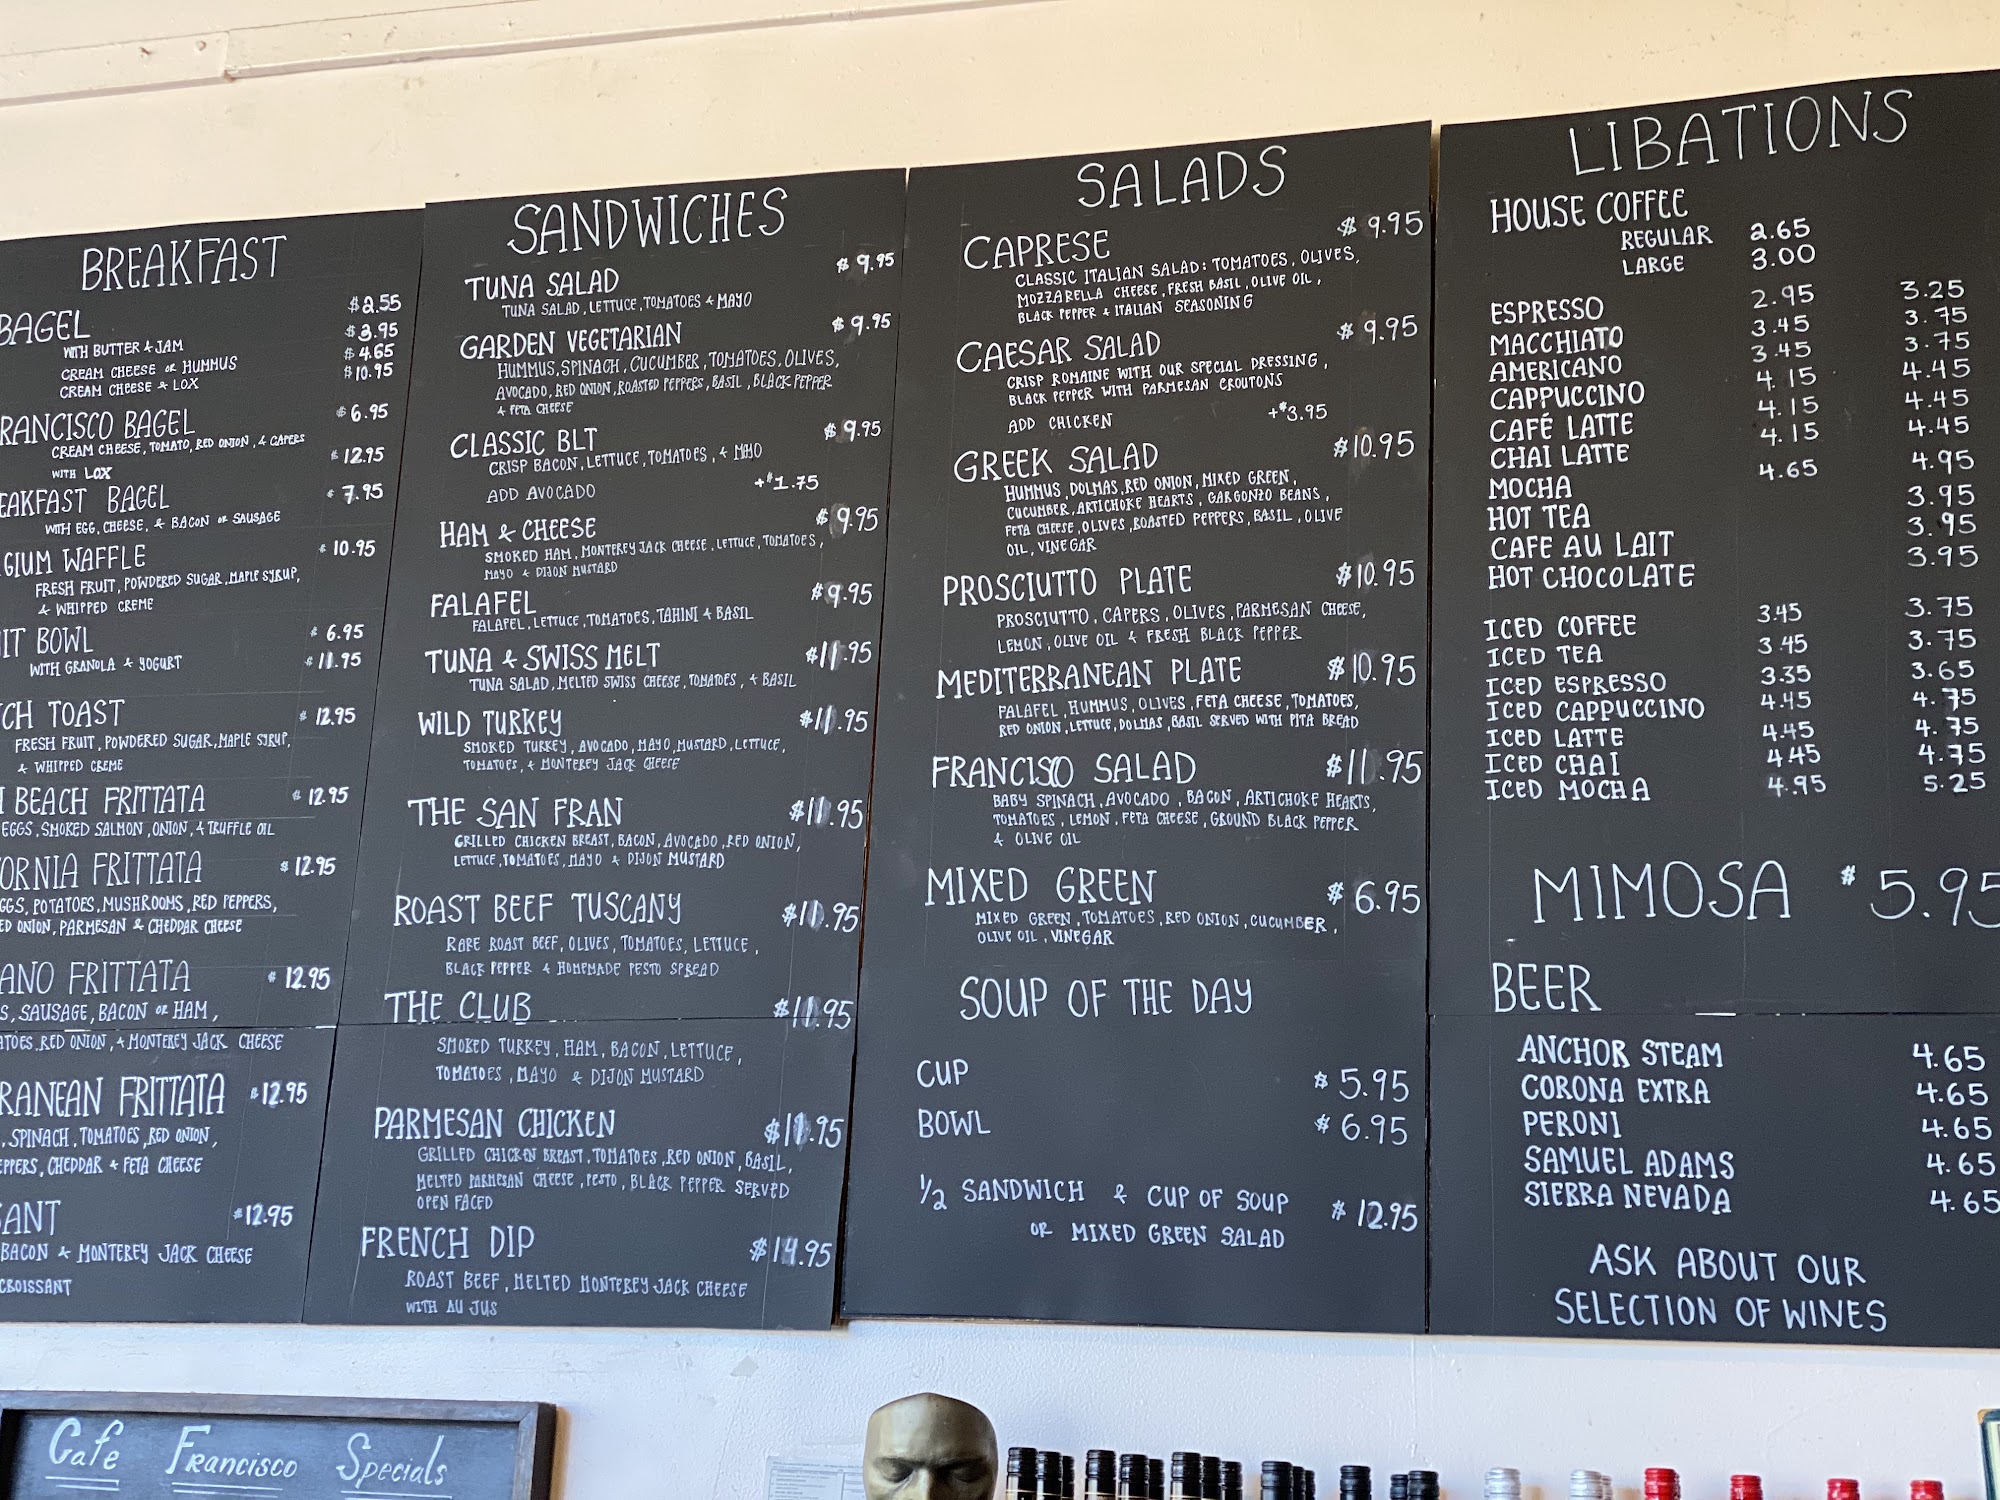 BREAKFAST
BAGEL $2.55
WITH BUTTER & JAM $3.95
CREAM CHEESE OR HUMMUS $4.65
CREAM CHEESE & LOX $10.95
RANCISCO BAGEL $6.95
CREAM CHEESE, TOMATO, RED ONION, & CAPERS
WITH LOX $12.95
EAKFAST BAGEL $7.95
WITH EGG, CHEESE, & BACON OR SAUSAGE
GIUM WAFFLE $10.95
FRESH FRUIT, POWDERED SUGAR, MAPLE SYRUP,
& WHIPPED CREME
IT BOWL $6.95
WITH GRANOLA & YOGURT $11.95
CH TOAST $12.95
FRESH FRUIT, POWDERED SUGAR, MAPLE SYRUP,
& WHIPPED CREME
H BEACH FRITTATA $12.95
EGGS, SMOKED SALMON, ONION, & TRUFFLE OIL
ORNIA FRITTATA $12.95
GGS, POTATOES, MUSHROOMS, RED PEPPERS,
ED ONION, PARMESAN & CHEDDAR CHEESE
ANO FRITTATA $12.95
S, SAUSAGE, BACON OR HAM,
ATOES, RED ONION, & MONTEREY JACK CHEESE
RANEAN FRITTATA $12.95
, SPINACH, TOMATOES, RED ONION,
EPPERS, CHEDDAR & FETA CHEESE
SANT $12.95
BACON & MONTEREY JACK CHEESE
CROISSANT
SANDWICHES
TUNA SALAD $9.95
TUNA SALAD, LETTUCE, TOMATOES & MAYO
GARDEN VEGETARIAN $9.95
HUMMUS, SPINACH, CUCUMBER, TOMATOES, OLIVES,
AVOCADO, RED ONION, ROASTED PEPPERS, BASIL, BLACK PEPPER
& FETA CHEESE
CLASSIC BLT $9.95
CRISP BACON, LETTUCE, TOMATOES, & MAYO
ADD AVOCADO +$1.75
HAM & CHEESE $9.95
SMOKED HAM, MONTEREY JACK CHEESE, LETTUCE, TOMATOES,
MAYO & DIJON MUSTARD
FALAFEL $9.95
FALAFEL, LETTUCE, TOMATOES, TAHINI & BASIL
TUNA & SWISS MELT $11.95
TUNA SALAD, MELTED SWISS CHEESE, TOMATOES, & BASIL
WILD TURKEY $11.95
SMOKED TURKEY, AVOCADO, MAYO, MUSTARD, LETTUCE,
TOMATOES, & MONTEREY JACK CHEESE
THE SAN FRAN $11.95
GRILLED CHICKEN BREAST, BACON, AVOCADO, RED ONION,
LETTUCE, TOMATOES, MAYO & DIJON MUSTARD
ROAST BEEF TUSCANY $11.95
RARE ROAST BEEF, OLIVES, TOMATOES, LETTUCE,
BLACK PEPPER & HOMEMADE PESTO SPREAD
THE CLUB $11.95
SMOKED TURKEY, HAM, BACON, LETTUCE,
TOMATOES, MAYO & DIJON MUSTARD
PARMESAN CHICKEN $11.95
GRILLED CHICKEN BREAST, TOMATOES, RED ONION, BASIL,
MELTED PARMESAN CHEESE, PESTO, BLACK PEPPER SERVED
OPEN FACED
FRENCH DIP $14.95
ROAST BEEF, MELTED MONTEREY JACK CHEESE
WITH AU JUS
SALADS
CAPRESE $9.95
CLASSIC ITALIAN SALAD: TOMATOES, OLIVES,
MOZZARELLA CHEESE, FRESH BASIL, OLIVE OIL,
BLACK PEPPER & ITALIAN SEASONING
CAESAR SALAD $9.95
CRISP ROMAINE WITH OUR SPECIAL DRESSING,
BLACK PEPPER WITH PARMESAN CROUTONS
ADD CHICKEN +$3.95
GREEK SALAD $10.95
HUMMUS, DOLMAS, RED ONION, MIXED GREEN,
CUCUMBER, ARTICHOKE HEARTS, GARGONZO BEANS,
FETA CHEESE, OLIVES, ROASTED PEPPERS, BASIL, OLIVE
OIL, VINEGAR
PROSCIUTTO PLATE $10.95
PROSCIUTTO, CAPERS, OLIVES, PARMESAN CHEESE,
LEMON, OLIVE OIL & FRESH BLACK PEPPER
MEDITERRANEAN PLATE $10.95
FALAFEL, HUMMUS, OLIVES, FETA CHEESE, TOMATOES,
RED ONION, LETTUCE, DOLMAS, BASIL SERVED WITH PITA BREAD
FRANCISCO SALAD $11.95
BABY SPINACH, AVOCADO, BACON, ARTICHOKE HEARTS,
TOMATOES, LEMON, FETA CHEESE, GROUND BLACK PEPPER
& OLIVE OIL
MIXED GREEN $6.95
MIXED GREEN, TOMATOES, RED ONION, CUCUMBER,
OLIVE OIL, VINEGAR
SOUP OF THE DAY
CUP $5.95
BOWL $6.95
1/2 SANDWICH & CUP OF SOUP $12.95
OR MIXED GREEN SALAD
LIBATIONS
HOUSE COFFEE
REGULAR 2.65
LARGE 3.00
ESPRESSO 2.95 3.25
MACCHIATO 3.45 3.75
AMERICANO 3.45 3.75
CAPPUCCINO 4.15 4.45
CAFÉ LATTE 4.15 4.45
CHAI LATTE 4.15 4.45
MOCHA 4.65 4.95
HOT TEA 3.95
CAFE AU LAIT 3.95
HOT CHOCOLATE 3.95
ICED COFFEE 3.45 3.75
ICED TEA 3.45 3.75
ICED ESPRESSO 3.35 3.65
ICED CAPPUCCINO 4.45 4.75
ICED LATTE 4.45 4.75
ICED CHAI 4.45 4.75
ICED MOCHA 4.95 5.25
MIMOSA $5.95
BEER
ANCHOR STEAM 4.65
CORONA EXTRA 4.65
PERONI 4.65
SAMUEL ADAMS 4.65
SIERRA NEVADA 4.65
ASK ABOUT OUR
SELECTION OF WINES
Cafe Francisco Specials